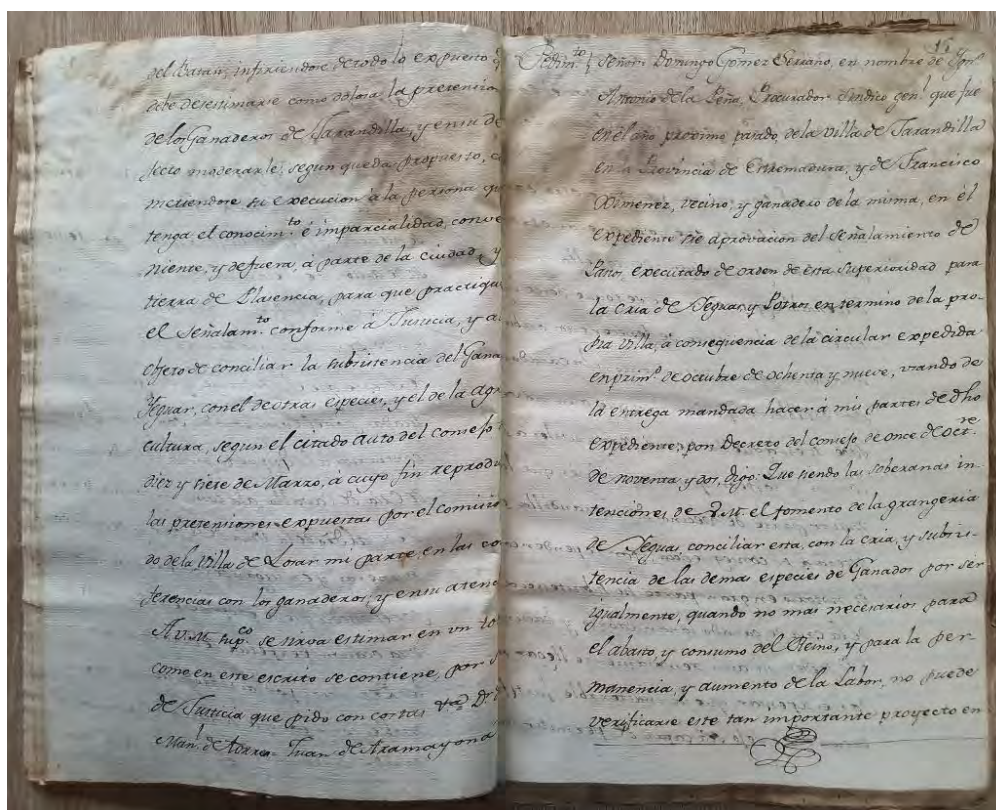 del Batan; infiriendose de todo lo expuesto q
debe desestimarse como dolosa la pretension
de los Ganaderos de Jarandilla, y en su de
fecto moderarle, segun queda propuesto, co
metiendose su execucion à la persona que
tenga el conocim.to è imparcialidad, conve
niente, y de fuera, à parte de la ciudad, y
tierra de Plasencia, para que practique
el Señalam.to conforme à Justicia, y al
objeto de conciliar la subsistencia del Gana
Yeguar, con el de otras especies, y el de la Agri
cultura, segun el citado Auto del consejo
diez y siete de Marzo, à cuyo fin reprodu
las pretensiones expuestas por el comisio
do de la Villa de Losar mi parte, en las con
ferencias con los ganaderos, y en su atenc
A V.M. sup.co se sirva estimar en un to
como en este escrito se contiene, por s
de Justicia que pido con costas D.r D.
Man.l de Torres. Juan de Aramayona
15
Pedim.to Señor: Domingo Gomez Serrano, en nombre de
Antonio de la Peña, Procurador Sindico gen.l que fue
en el año proximo pasado, de la Villa de Jarandilla
en la Provincia de Extremadura, y de Francisco
Ximenez, vecino, y ganadero de la misma, en el
expediente de aprovacion del Señalamiento de
Pastos, executado de orden de esta Superioridad para
la cria de Yeguas, y Potros en termino de la pro-
pia Villa, à consequencia de la circular expedida
en prim.o de octubre de ochenta y nueve, usando de
la entrega mandada hacer à mis partes de dho
expediente, por Decreto del consejo de once de oct.re
de noventa y dos, digo: Que siendo las soberanas in-
tenciones de S.M. el fomento de la grangeria
de Yeguas, conciliar esta, con la cria, y subsis-
tencia de las demas especies de Ganados por ser
igualmente, quando no mas necesarios para
el abasto y consumo del Reino, y para la per-
manencia, y aumento de la Labor, no puede
verificarse este tan importante proyecto en